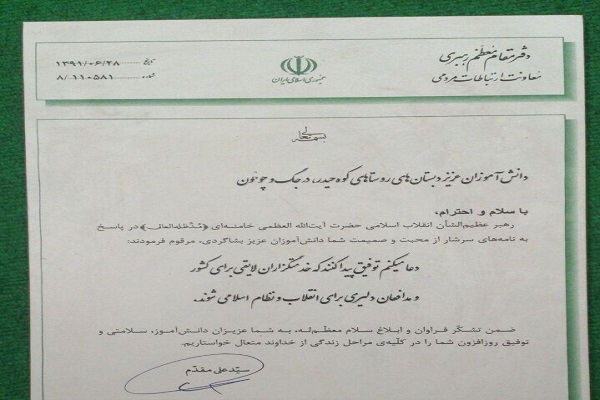 دفتر مقام معظم رهبری
معاونت ارتباطات مردمی
جمهوری اسلامی ایران
تاریخ ۱۳۹۱/۰۶/۲۸
شماره ۸/۱۱۰۵۸۱
بسمه تعالی
دانش‌آموزان عزیز دبستان‌های روستاهای کوه حیدر، درجک و چوخون
با سلام و احترام،
رهبر عظیم‌الشأن انقلاب اسلامی حضرت آیت‌الله العظمی خامنه‌ای (مدّظله‌العالی) در پاسخ
به نامه‌های سرشار از محبت و صمیمت شما دانش‌آموزان عزیز بشاگردی، مرقوم فرمودند:
دعا میکنم توفیق پیدا کنند که خدمتگزاران لایقی برای کشور
و مدافعان دلیری برای انقلاب و نظام اسلامی شوند.
ضمن تشکّر فراوان و ابلاغ سلام معظّم‌له، به شما عزیزان دانش‌آموز، سلامتی و
توفیق روزافزون شما را در کلّیه‌ی مراحل زندگی از خداوند متعال خواستاریم.
سیّدعلی مقدّم